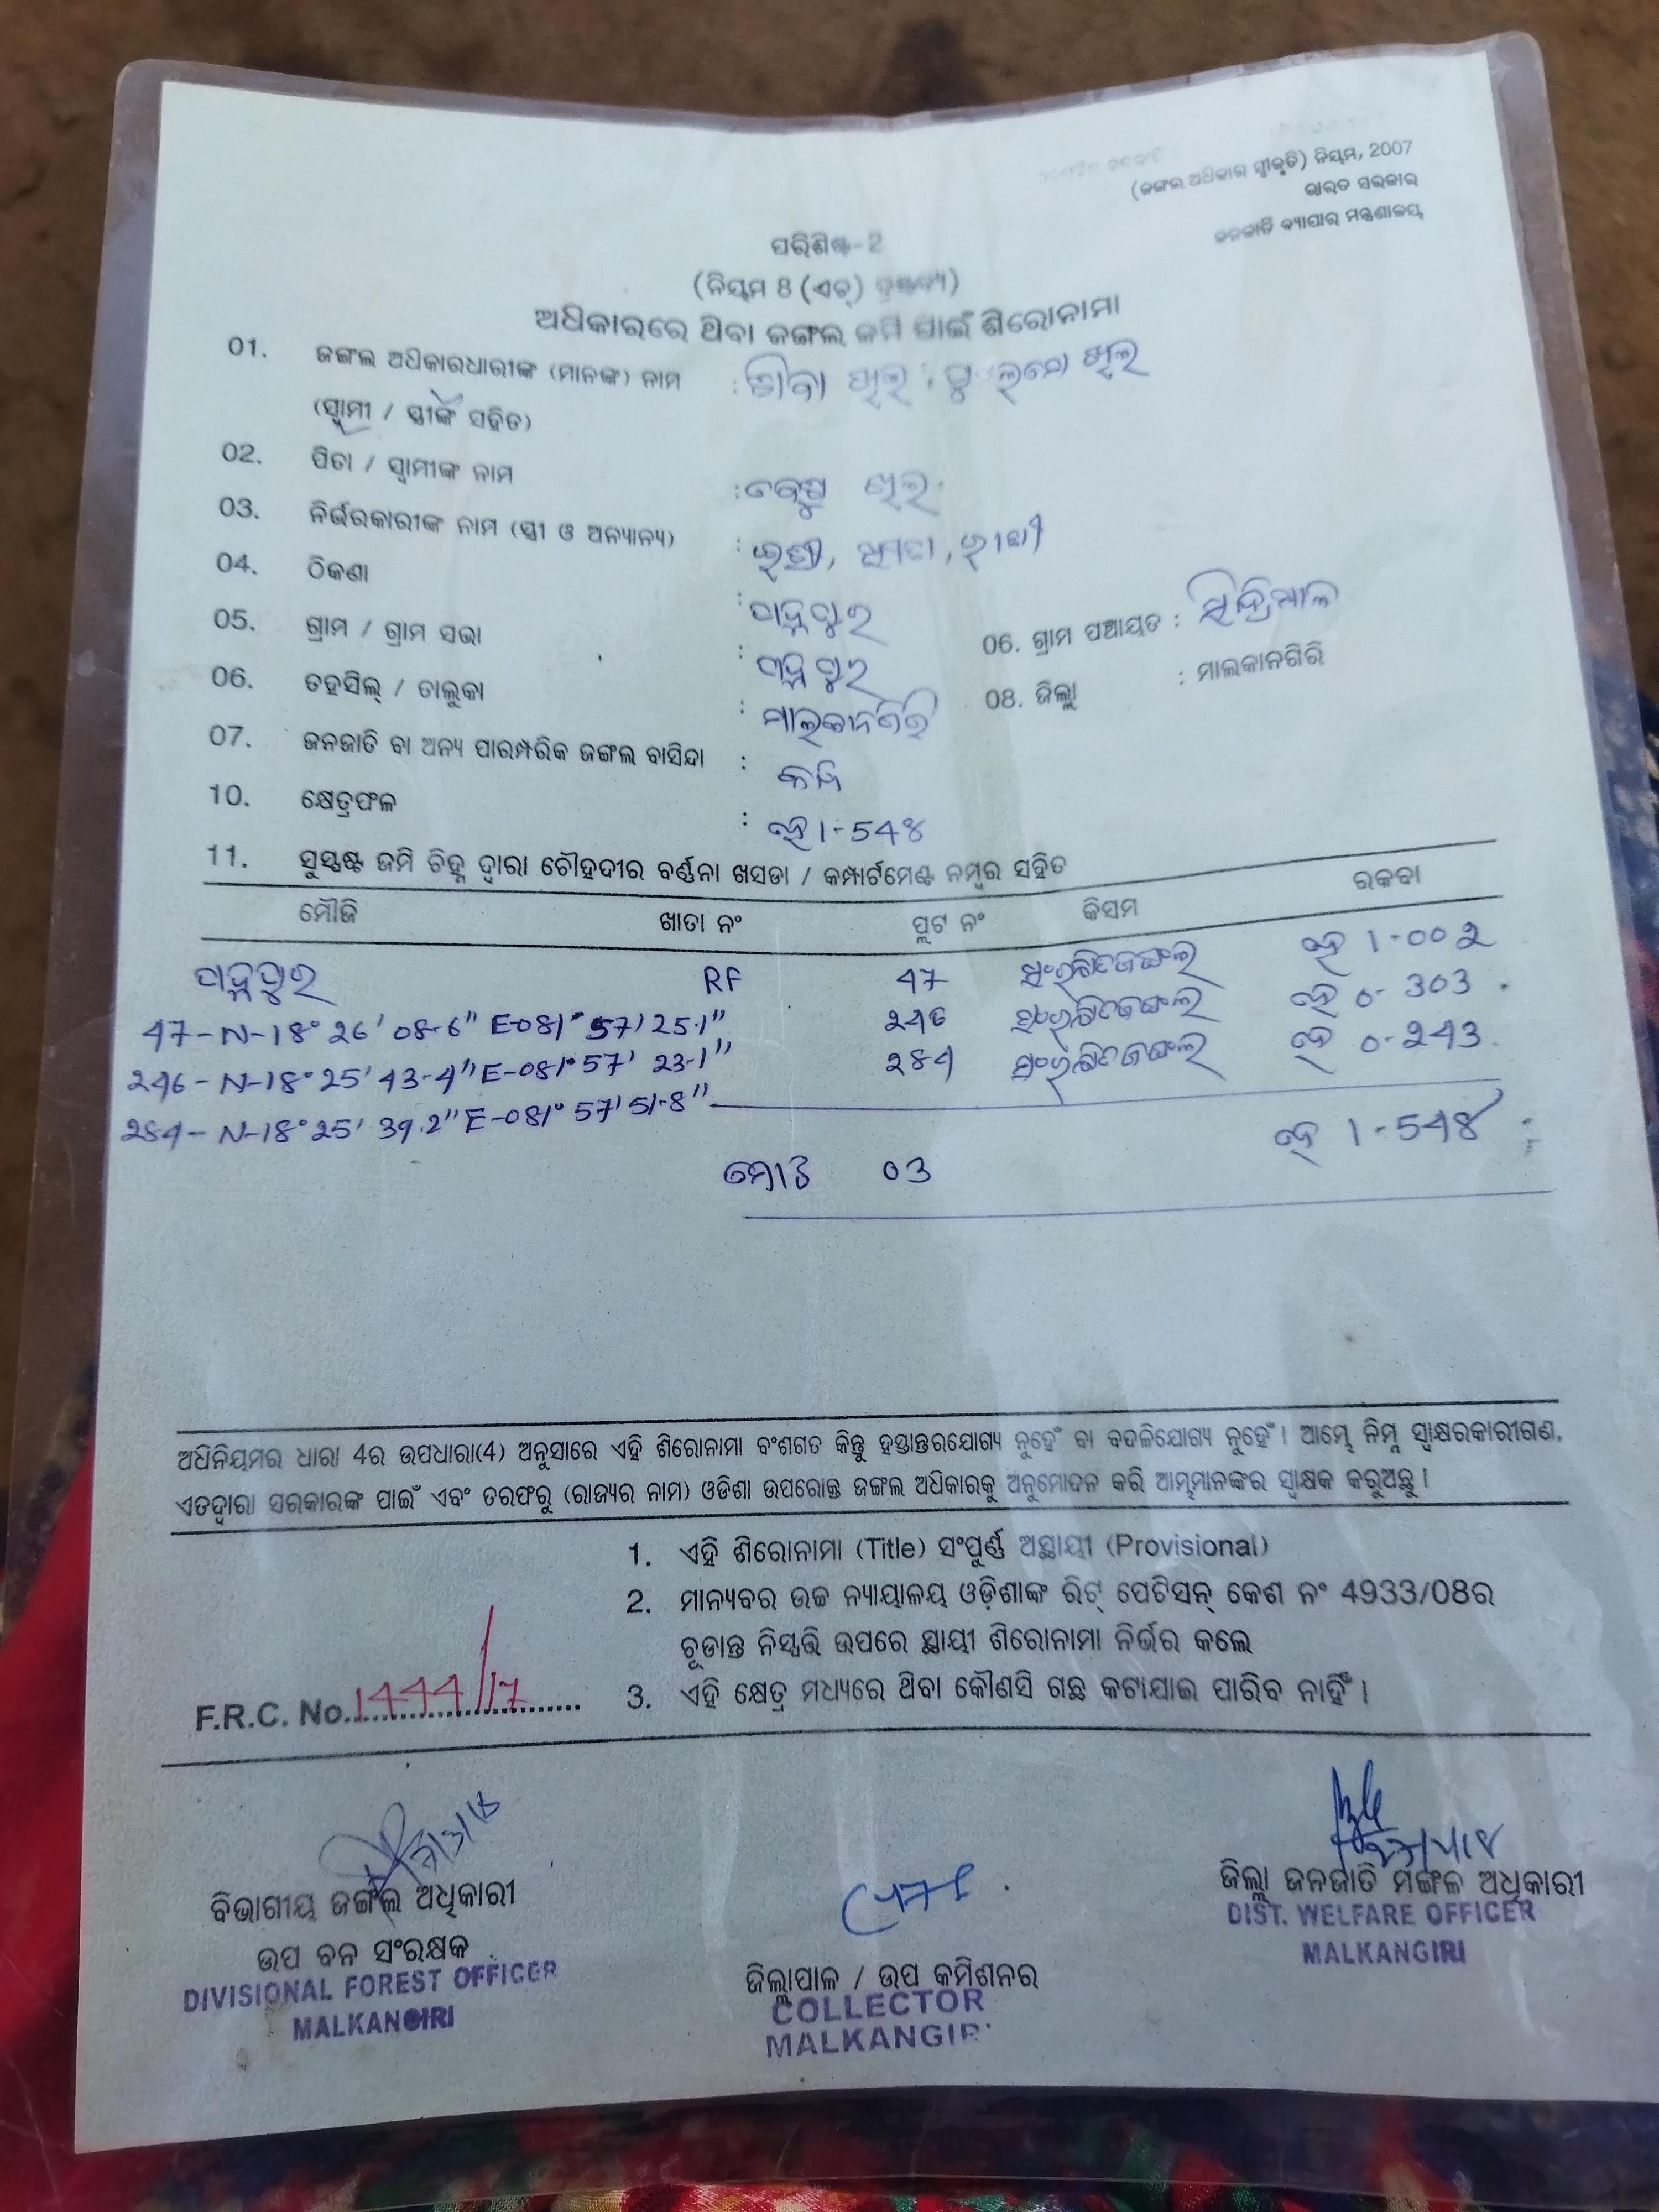 (ଜଙ୍ଗଲ ଅଧିକାର ସ୍ୱୀକୃତି) ନିୟମ, 2007
ଭାରତ ସରକାର
ଜନଜାତି ବ୍ୟାପାର ମନ୍ତ୍ରଣାଳୟ
ପରିଶିଷ୍ଟ-2
(ନିୟମ 8 (ଏଚ୍) ଦ୍ରଷ୍ଟବ୍ୟ)
ଅଧିକାରରେ ଥିବା ଜଙ୍ଗଲ ଜମି ପାଇଁ ଶିରୋନାମା
01. ଜଙ୍ଗଲ ଅଧିକାରଧାରୀଙ୍କ (ମାନଙ୍କ) ନାମ :
(ସ୍ୱାମୀ / ସ୍ତ୍ରୀଙ୍କ ସହିତ)
02. ପିତା / ସ୍ୱାମୀଙ୍କ ନାମ :
03. ନିର୍ଭରକାରୀଙ୍କ ନାମ (ସ୍ତ୍ରୀ ଓ ଅନ୍ୟାନ୍ୟ) :
04. ଠିକଣା : ପଦ୍ମପୁର
05. ଗ୍ରାମ / ଗ୍ରାମ ସଭା : ପଦ୍ମପୁର 06. ଗ୍ରାମ ପଞ୍ଚାୟତ :
06. ତହସିଲ୍ / ତାଲୁକା : ମାଲକାନଗିରି 08. ଜିଲ୍ଲା : ମାଲକାନଗିରି
07. ଜନଜାତି ବା ଅନ୍ୟ ପାରମ୍ପରିକ ଜଙ୍ଗଲ ବାସିନ୍ଦା :
10. କ୍ଷେତ୍ରଫଳ : ହେ 1-548
11. ସୁସ୍ପଷ୍ଟ ଜମି ଚିହ୍ନ ଦ୍ୱାରା ଚୌହଦୀର ବର୍ଣ୍ଣନା ଖସଡା / କମ୍ପାର୍ଟମେଣ୍ଟ ନମ୍ବର ସହିତ
ମୌଜି ଖାତା ନଂ ପ୍ଲଟ ନଂ କିସମ ରକବା
ପଦ୍ମପୁର RF 47 ସଂରକ୍ଷିତ ଜଙ୍ଗଲ ହେ 1-002
47-N-18° 26' 08.6" E-081° 57' 25.1" 246 ସଂରକ୍ଷିତ ଜଙ୍ଗଲ ହେ 0-303
246-N-18° 25' 43-4" E-081° 57' 23-1" 284 ସଂରକ୍ଷିତ ଜଙ୍ଗଲ ହେ 0-243
284-N-18° 25' 39.2" E-081° 57' 51-8"
ମୋଟ 03 ହେ 1-548
ଅଧିନିୟମର ଧାରା 4ର ଉପଧାରା(4) ଅନୁସାରେ ଏହି ଶିରୋନାମା ବଂଶଗତ କିନ୍ତୁ ହସ୍ତାନ୍ତରଯୋଗ୍ୟ ନୁହେଁ ବା ବଦଳିଯୋଗ୍ୟ ନୁହେଁ । ଆମ୍ଭେ ନିମ୍ନ ସ୍ୱାକ୍ଷରକାରୀଗଣ,
ଏତଦ୍ୱାରା ସରକାରଙ୍କ ପାଇଁ ଏବଂ ତରଫରୁ (ରାଜ୍ୟର ନାମ) ଓଡିଶା ଉପରୋକ୍ତ ଜଙ୍ଗଲ ଅଧିକାରକୁ ଅନୁମୋଦନ କରି ଆମ୍ଭମାନଙ୍କର ସ୍ୱାକ୍ଷକ କରୁଅଛୁ ।
1. ଏହି ଶିରୋନାମା (Title) ସଂପୂର୍ଣ୍ଣ ଅସ୍ଥାୟୀ (Provisional)
2. ମାନ୍ୟବର ଉଚ୍ଚ ନ୍ୟାୟାଳୟ ଓଡ଼ିଶାଙ୍କ ରିଟ୍ ପେଟିସନ୍ କେଶ ନଂ 4933/08ର
ଚୂଡାନ୍ତ ନିସ୍ପତ୍ତି ଉପରେ ସ୍ଥାୟୀ ଶିରୋନାମା ନିର୍ଭର କଲେ
3. ଏହି କ୍ଷେତ୍ର ମଧ୍ୟରେ ଥିବା କୌଣସି ଗଛ କଟାଯାଇ ପାରିବ ନାହିଁ ।
F.R.C. No. 1444/17
ବିଭାଗୀୟ ଜଙ୍ଗଲ ଅଧିକାରୀ
ଉପ ବନ ସଂରକ୍ଷକ
DIVISIONAL FOREST OFFICER
MALKANGIRI
ଜିଲ୍ଲାପାଳ / ଉପ କମିଶନର
COLLECTOR
MALKANGIRI
ଜିଲ୍ଲା ଜନଜାତି ମଙ୍ଗଳ ଅଧିକାରୀ
DIST. WELFARE OFFICER
MALKANGIRI